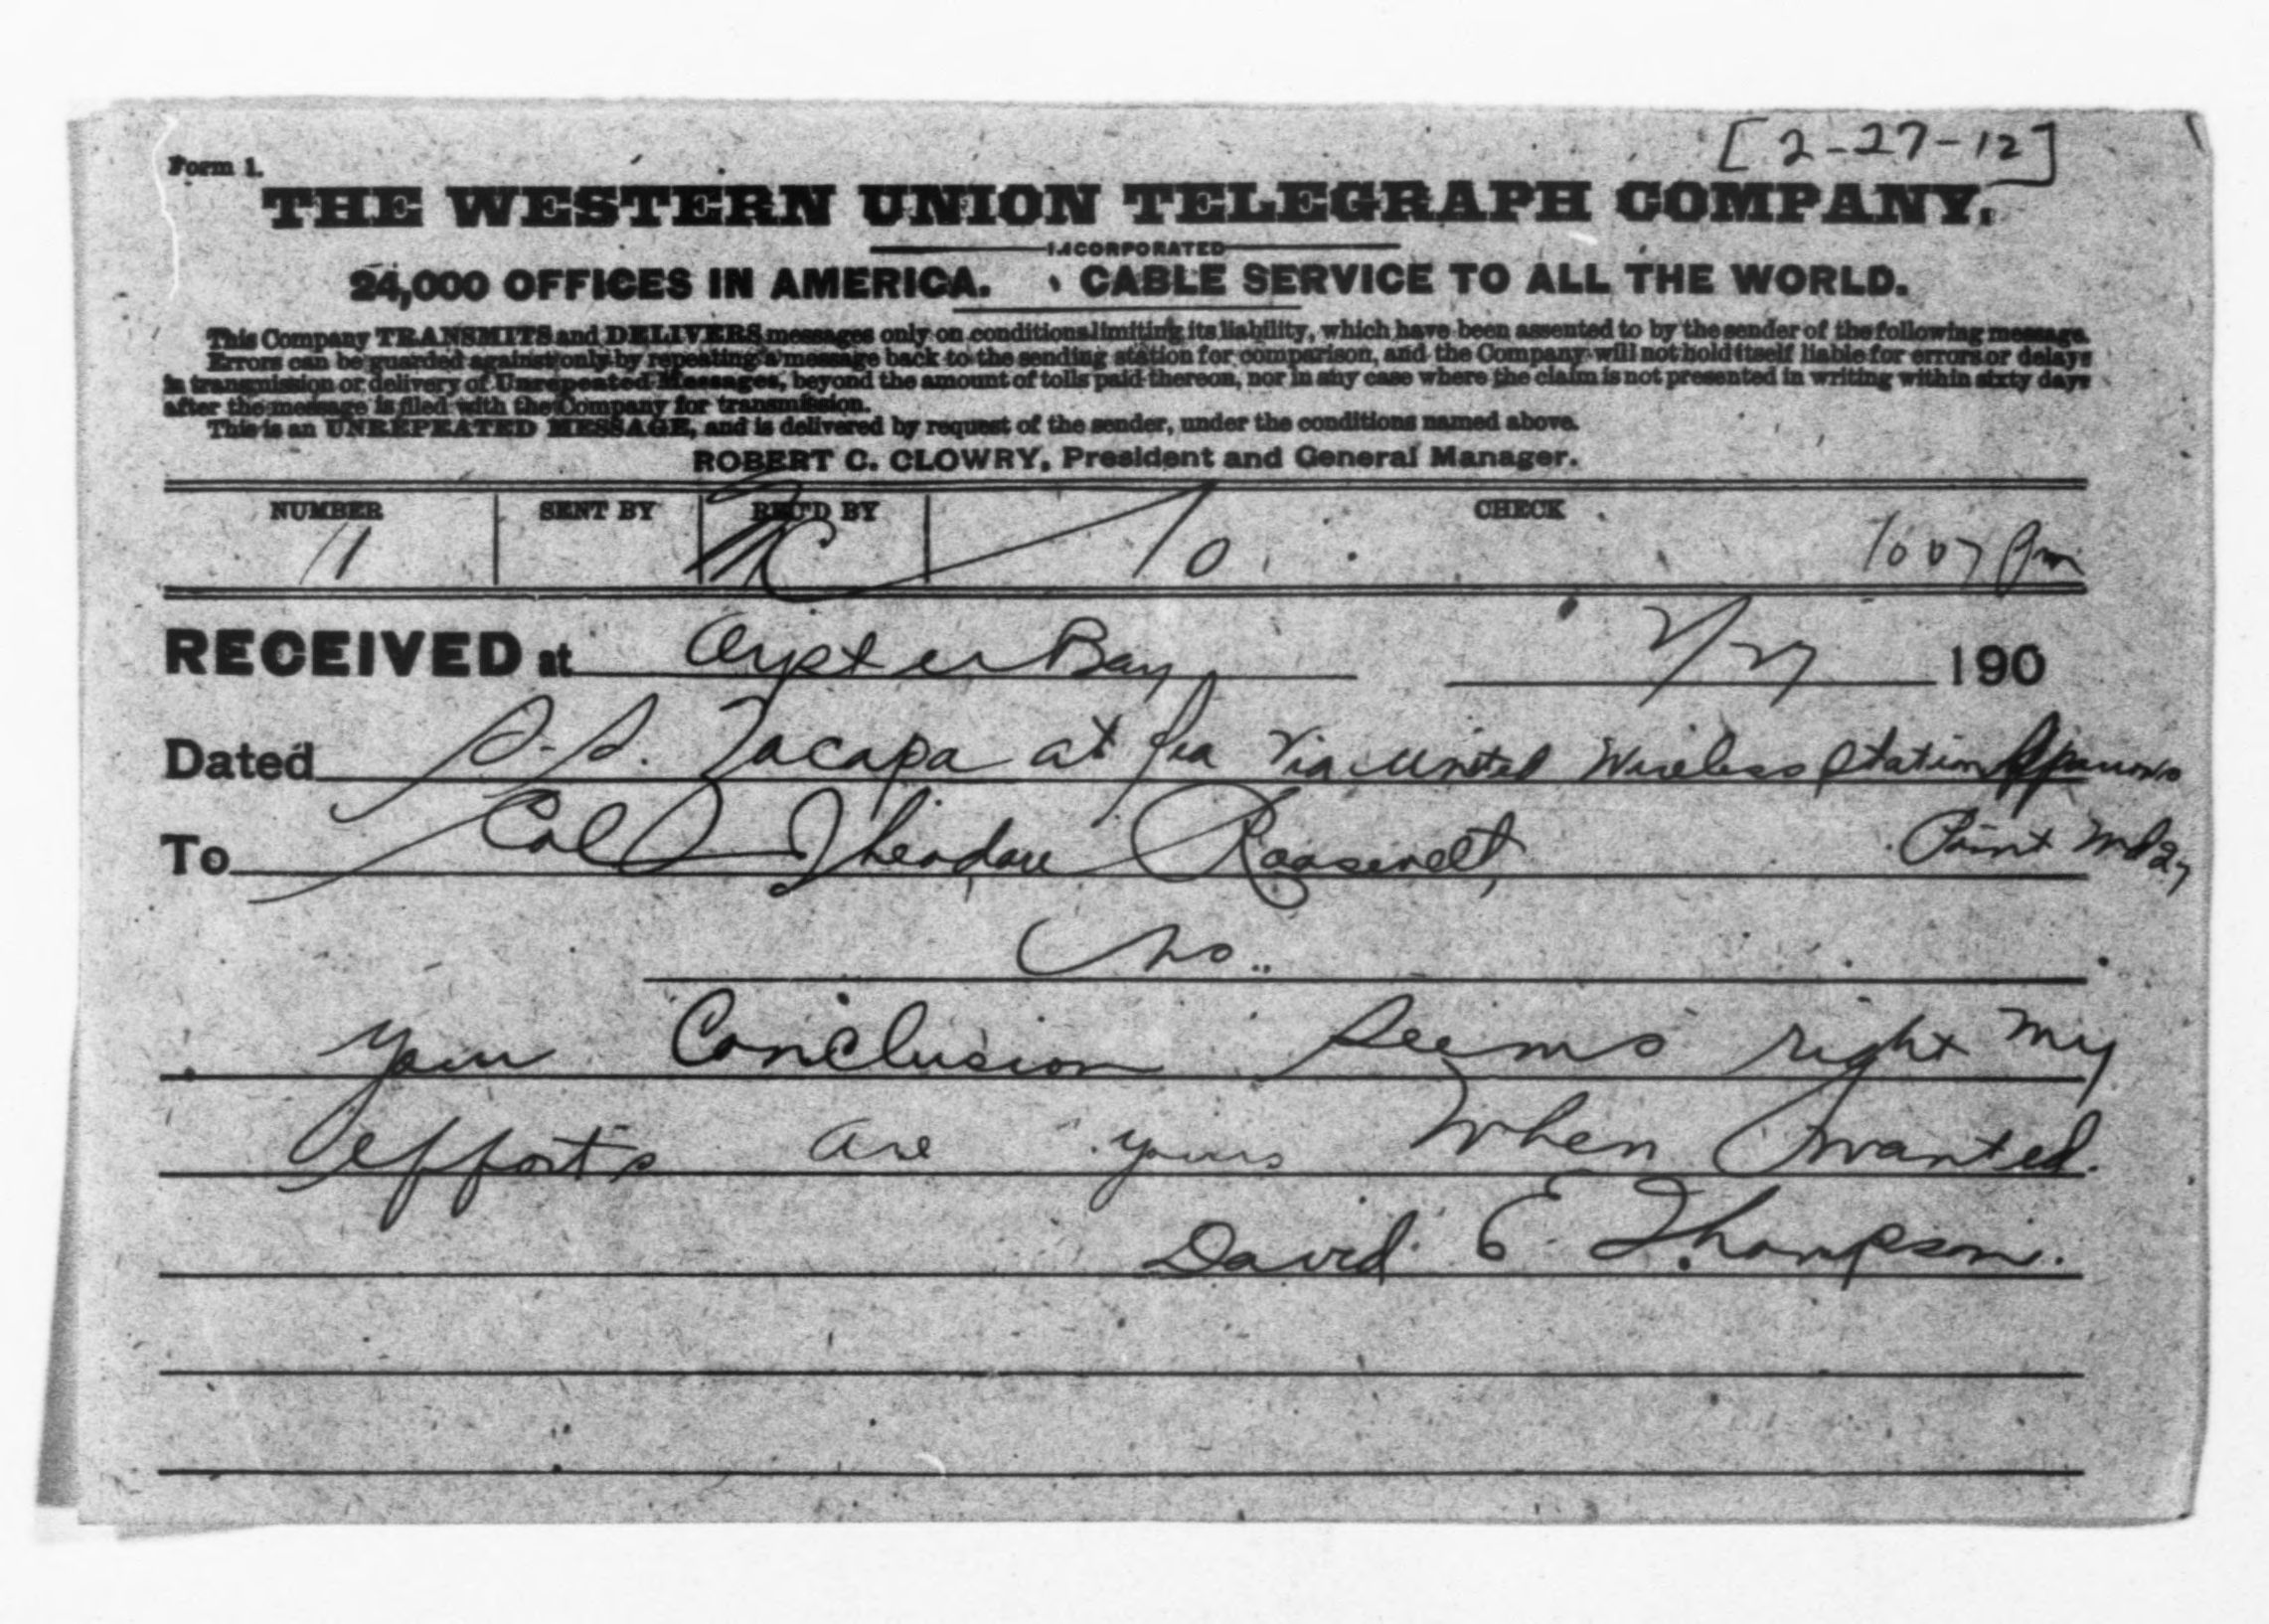 [2-27-12]
Form 1.
THE WESTERN UNION TELEGRAPH COMPANY.
INCORPORATED
24,000 OFFICES IN AMERICA. CABLE SERVICE TO ALL THE WORLD.
This Company TRANSMITS and DELIVERS messages only on conditions limiting its liability, which have been assented to by the sender of the following message.
Errors can be guarded against only by repeating a message back to the sending station for comparison, and the Company will not hold itself liable for errors or delays
in transmission or delivery of Unrepeated Messages, beyond the amount of tolls paid thereon, nor in any case where the claim is not presented in writing within sixty days
after the message is filed with the Company for transmission.
This is an UNREPEATED MESSAGE, and is delivered by request of the sender, under the conditions named above.
ROBERT C. CLOWRY, President and General Manager.
NUMBER SENT BY REC'D BY CHECK
11 10 1007 Pm
RECEIVED at Oyster Bay 2/27 190
Dated S.S. Zacapa at sea Via United Wireless Station Sparrows
Point Md 27
To Col Theodore Roosevelt,
your Conclusion seems right my
efforts are yours when wanted.
David E. Thompson.